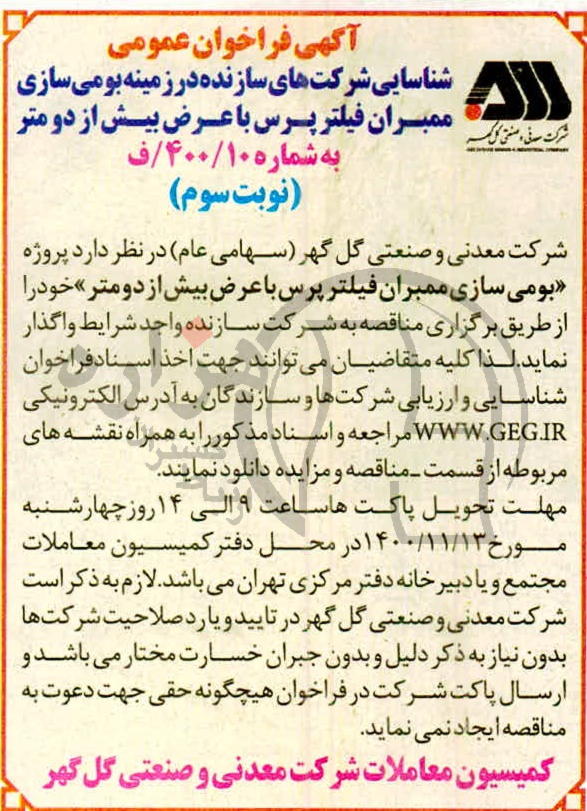 آگهی فراخوان عمومی
شناسایی شرکت‌های سازنده در زمینه بومی‌سازی
ممبران فیلتر پرس با عرض بیش از دو متر
به شماره ۴۰۰/۱۰/ف
(نوبت سوم)
شرکت معدنی و صنعتی گل گهر
GOL GOHAR MINING & INDUSTRIAL COMPANY
شرکت معدنی و صنعتی گل گهر (سهامی عام) در نظر دارد پروژه
«بومی سازی ممبران فیلتر پرس با عرض بیش از دو متر» خود را
از طریق برگزاری مناقصه به شرکت سازنده واجد شرایط واگذار
نماید. لذا کلیه متقاضیان می توانند جهت اخذ اسناد فراخوان
شناسایی و ارزیابی شرکت‌ها و سازندگان به آدرس الکترونیکی
WWW.GEG.IR مراجعه و اسناد مذکور را به همراه نقشه های
مربوطه از قسمت - مناقصه و مزایده دانلود نمایند.
مهلت تحویل پاکت هاساعت ۹ الی ۱۴ روز چهارشنبه
مورخ ۱۴۰۰/۱۱/۱۳ در محل دفتر کمیسیون معاملات
مجتمع و یا دبیر خانه دفتر مرکزی تهران می باشد. لازم به ذکر است
شرکت معدنی و صنعتی گل گهر در تایید و یا رد صلاحیت شرکت‌ها
بدون نیاز به ذکر دلیل و بدون جبران خسارت مختار می باشد و
ارسال پاکت شرکت در فراخوان هیچگونه حقی جهت دعوت به
مناقصه ایجاد نمی نماید.
کمیسیون معاملات شرکت معدنی و صنعتی گل گهر